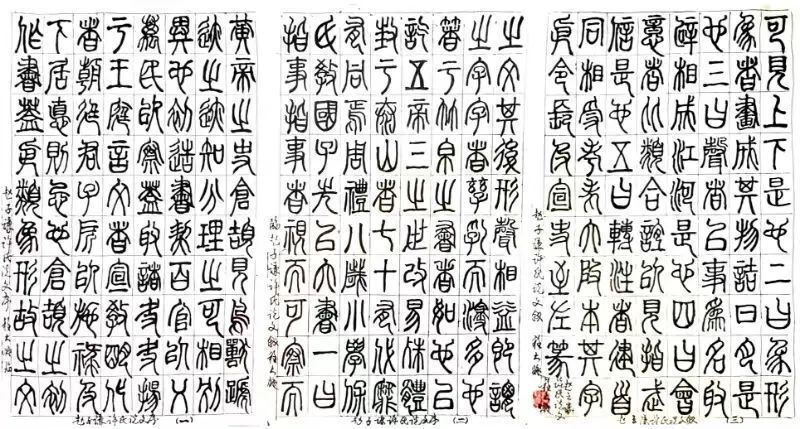 黃帝之史倉頡見鳥獸蹏
迒之迹知分理之可相別
異也初造書契百官以乂
萬民以察蓋取諸夬夬揚
于王庭言文者宣教明化
者朝廷君子所以施祿及
下居德則忌也倉頡之初
作書蓋依類象形故之文
趙子謙許氏說文序
趙子謙許氏說文序 (一)
之文其後形聲相益即謂
之字字者孳乳而浸多也
箸于竹帛之書者如也以
訖五帝三之世改易殊體
封于泰山者七十有代靡
有同焉周禮八歲小學保
氏教國子先以六書一曰
指事指事者視而可察而
臨趙子謙許氏說文敘
趙子謙許氏說文序 (二)
可見上下是也二曰象形
象者畫成其物詰日月是
也三曰聲者以事爲名取
譬相成江河是也四曰會
意者比類合誼以見指武
信是也五曰轉注者建首
同相受考老六叚本其字
令長及宣史籀大篆
趙子謙許氏說文敘
趙子謙許氏說文敘 (三)